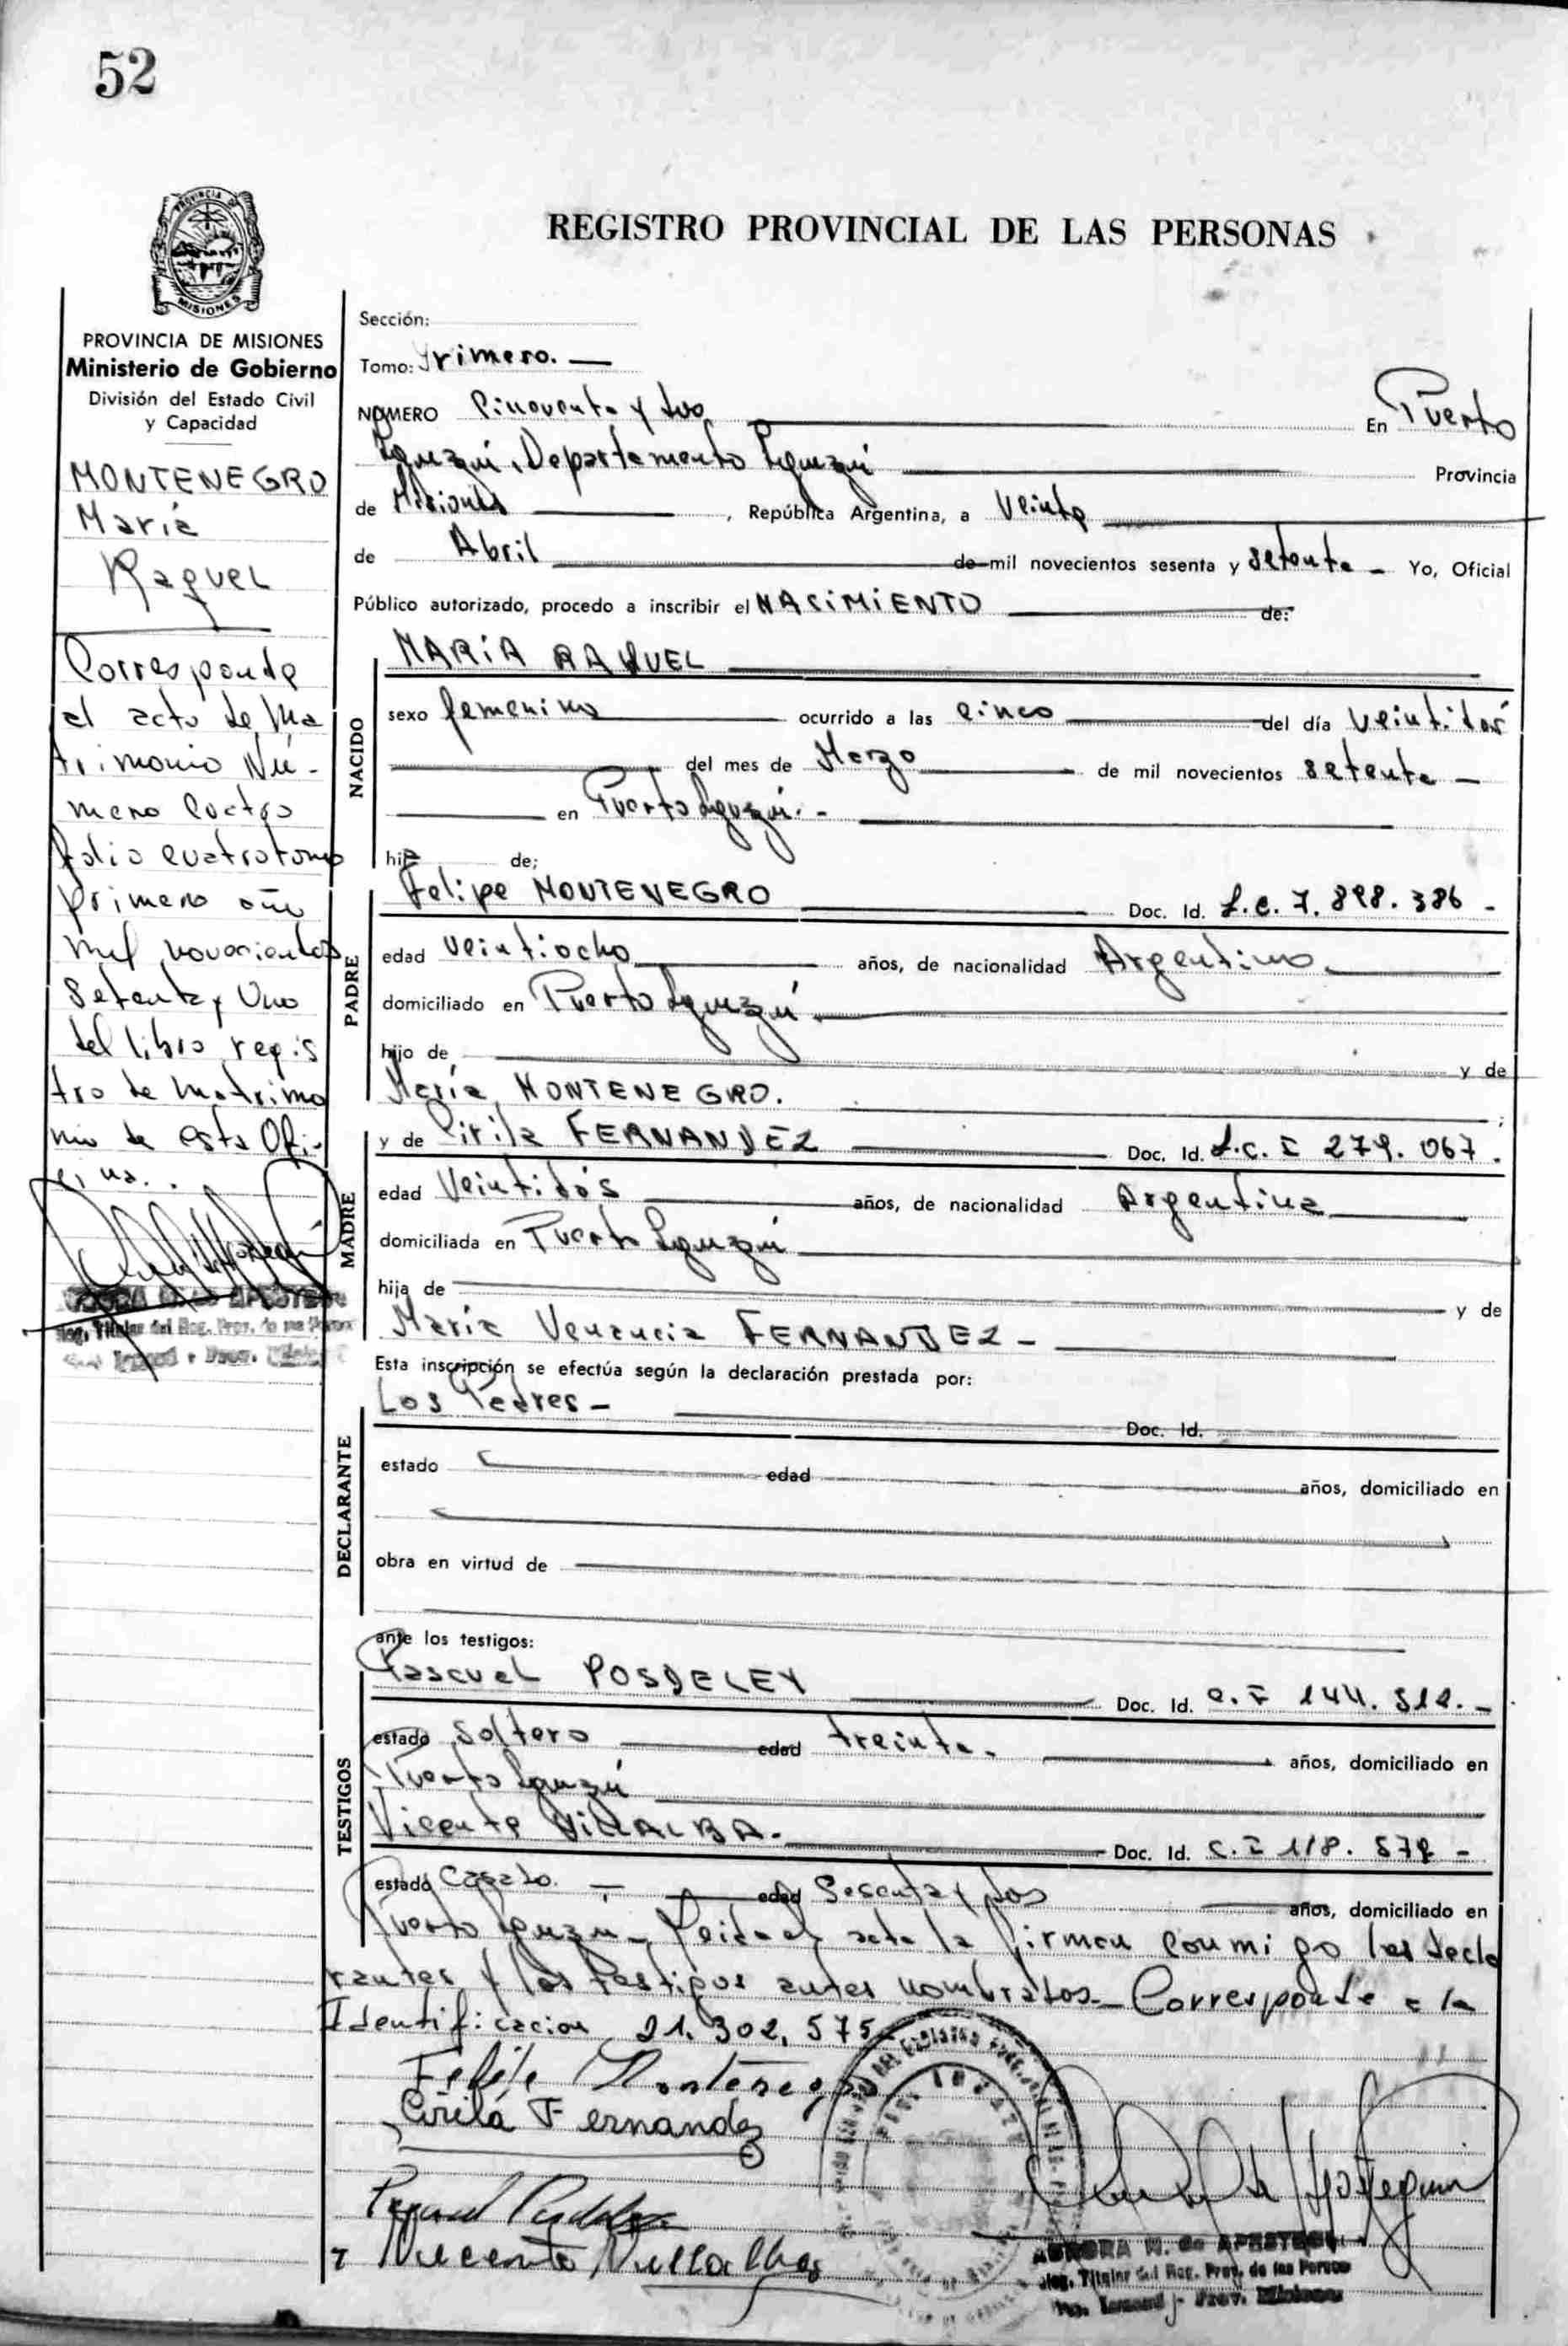 52
PROVINCIA DE
MISIONES
REGISTRO PROVINCIAL DE LAS PERSONAS
PROVINCIA DE MISIONES
Ministerio de Gobierno
División del Estado Civil
y Capacidad
MONTENEGRO
María
Raquel
Corresponde
al acto de Ma
trimonio Nú-
mero Cuatro
folio cuatro tomo
primero año
mil novecientos
Setenta y Uno
del libro regis
tro de matrimo
nio de esta Ofi-
cina..
Sección:
Tomo: Primero.
NUMERO Cincuenta y dos En Puerto
Iguazú, Departamento Iguazú Provincia
de Misiones, República Argentina, a Veinte
de Abril de mil novecientos sesenta y Setenta - Yo, Oficial
Público autorizado, procedo a inscribir el NACIMIENTO de:
NACIDO
MARÍA RAQUEL
sexo femenino ocurrido a las cinco del día veintidós
del mes de Marzo de mil novecientos setenta -
en Puerto Iguazú. -
hija de;
PADRE
Felipe MONTENEGRO Doc. Id. L.E. 7.898.386 -
edad Veintiocho años, de nacionalidad Argentino
domiciliado en Puerto Iguazú
hijo de y de
María MONTENEGRO. ;
MADRE
y de Cirila FERNANDEZ Doc. Id. L.C. I 279.067.
edad Veintidós años, de nacionalidad Argentina
domiciliada en Puerto Iguazú
hija de y de
María Venancia FERNANDEZ -
Esta inscripción se efectúa según la declaración prestada por:
DECLARANTE
Los Padres - Doc. Id.
estado edad años, domiciliado en
obra en virtud de
ante los testigos:
TESTIGOS
Pascual POSDELEY Doc. Id. C.I 144.512. -
estado Soltero edad treinta. años, domiciliado en
Puerto Iguazú
Vicente VILLALBA. Doc. Id. C.I 118.579 -
estado Casado. edad Sesenta y dos años, domiciliado en
Puerto Iguazú - Leida el acta la firman conmigo los decla
rantes y los testigos antes nombrados - Corresponde a la
Identificación 21.302.575
Felipe Montenegro
Cirila Fernandez
Vicente Villalba
AURORA M. de APESTEGUI
Reg. Titular del Reg. Prov. de las Personas